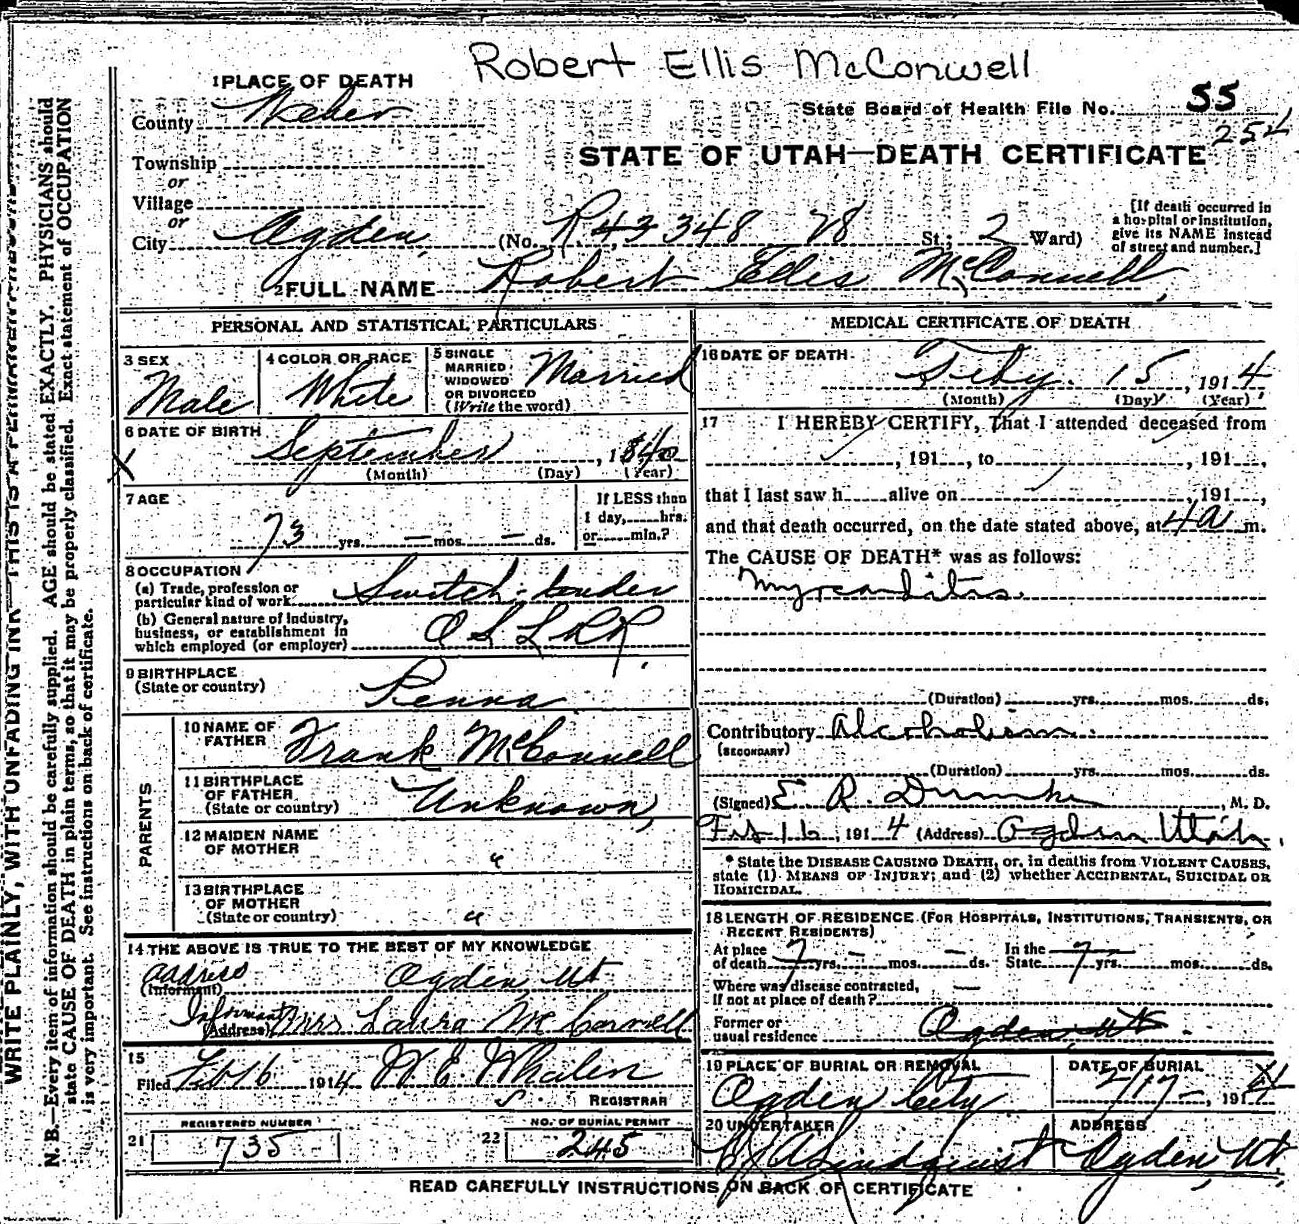 Robert Ellis McConwell
1 PLACE OF DEATH
County Weber
State Board of Health File No. 55
254
Township
or
Village
or
STATE OF UTAH—DEATH CERTIFICATE
City Ogden, (No. R. 43 348 78 St.; 2 Ward)
[If death occurred in a hospital or institution, give its NAME instead of street and number.]
2 FULL NAME Robert Ellis McConnell,
PERSONAL AND STATISTICAL PARTICULARS
3 SEX Male
4 COLOR OR RACE White
5 SINGLE MARRIED WIDOWED OR DIVORCED (Write the word) Married
6 DATE OF BIRTH
September , 1840
(Month) (Day) (Year)
7 AGE
73 yrs. — mos. — ds.
If LESS than 1 day, hrs. or min.?
8 OCCUPATION
(a) Trade, profession or particular kind of work Switch-tender
(b) General nature of industry, business, or establishment in which employed (or employer) O S L RR.
9 BIRTHPLACE
(State or country) Penna
PARENTS
10 NAME OF FATHER Frank McConnell
11 BIRTHPLACE OF FATHER (State or country) Unknown,
12 MAIDEN NAME OF MOTHER "
13 BIRTHPLACE OF MOTHER (State or country) "
14 THE ABOVE IS TRUE TO THE BEST OF MY KNOWLEDGE
Address
(Informant) Ogden Ut
Informant
(Address) Mrs Laura McConnell
15
Filed Feb 16 1914 W. E. Whalen
REGISTRAR
REGISTERED NUMBER
21 735
NO. OF BURIAL PERMIT
22 245
MEDICAL CERTIFICATE OF DEATH
16 DATE OF DEATH
Feby. 15, 1914
(Month) (Day) (Year)
17 I HEREBY CERTIFY, That I attended deceased from
, 191 , to , 191 ,
that I last saw h alive on , 191 ,
and that death occurred, on the date stated above, at 4 a m.
The CAUSE OF DEATH* was as follows:
Myocarditis.
(Duration) yrs. mos. ds.
Contributory Alcoholism.
(SECONDARY)
(Duration) yrs. mos. ds.
(Signed) E. R. Dumke, M. D.
Feb 16, 1914 (Address) Ogden Utah.
* State the DISEASE CAUSING DEATH, or, in deaths from VIOLENT CAUSES,
state (1) MEANS OF INJURY; and (2) whether ACCIDENTAL, SUICIDAL OR
HOMICIDAL.
18 LENGTH OF RESIDENCE (FOR HOSPITALS, INSTITUTIONS, TRANSIENTS, OR
RECENT RESIDENTS)
At place of death 7 yrs. — mos. — ds. In the State 7 yrs. mos. ds.
Where was disease contracted,
if not at place of death? —
Former or
usual residence Ogden, Ut.
19 PLACE OF BURIAL OR REMOVAL
Ogden City
DATE OF BURIAL
2/17 -, 1914
20 UNDERTAKER
Lindquist
ADDRESS
Ogden, Ut.
READ CAREFULLY INSTRUCTIONS ON BACK OF CERTIFICATE
WRITE PLAINLY, WITH UNFADING INK—THIS IS A PERMANENT RECORD
N. B.—Every item of information should be carefully supplied. AGE should be stated EXACTLY. PHYSICIANS should
state CAUSE OF DEATH in plain terms, so that it may be properly classified. Exact statement of OCCUPATION
is very important. See instructions on back of certificate.